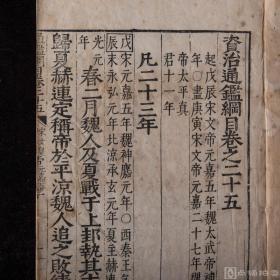 資治通鑑綱目卷之二十五
起戊辰宋文帝元嘉五年魏太武帝神
年○盡庚寅宋文帝元嘉二十七年魏
帝太平真
君十一年
凡二十三年
戊辰
宋元嘉五年魏神䴥元年○西秦王
末永弘元年北涼承玄元年夏主赫連
光元
年
春二月魏人及夏戰于上邽執其
歸夏赫連定稱帝於平涼魏人追之敗